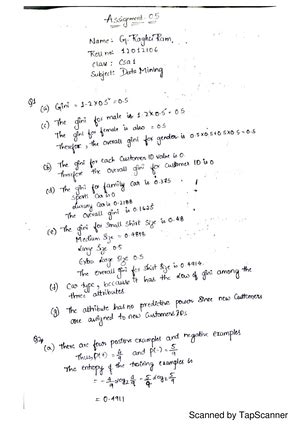 Assignment 05
Name: G. Raghu Ram
Roll no: 12012106
Class: CSA1
Subject: Data Mining
Q1
(a) Gini = 1-2x0.5² = 0.5
(c) The gini for male is 1-2x0.5² = 0.5
The gini for female is also = 0.5
Therefore, the overall gini for gender is 0.5x0.5+0.5x0.5 = 0.5
(b) The gini for each Customer ID value is 0
Therefore the overall gini for Customer ID is 0
(d) The gini for family car is 0.375
Sports car is 0
Luxury car is 0.2188
The overall gini is 0.1625
(e) The gini for small shirt size is 0.48
Medium size = 0.4898
Large size 0.5
Extra large size 0.5
The overall gini for shirt size is 0.4914.
Car type, because it has the low of gini among the
three attributes
(g) The attribute has no predictive power since new customers
are assigned to new Customer IDs.
(a) There are four postive examples and negative examples
Thus, P(+) = 4/9 and P(-) = 5/9
The entropy of the training examples is
= -4/9 log2 4/9 - 5/9 log2 5/9
= 0.4911
Scanned by TapScanner